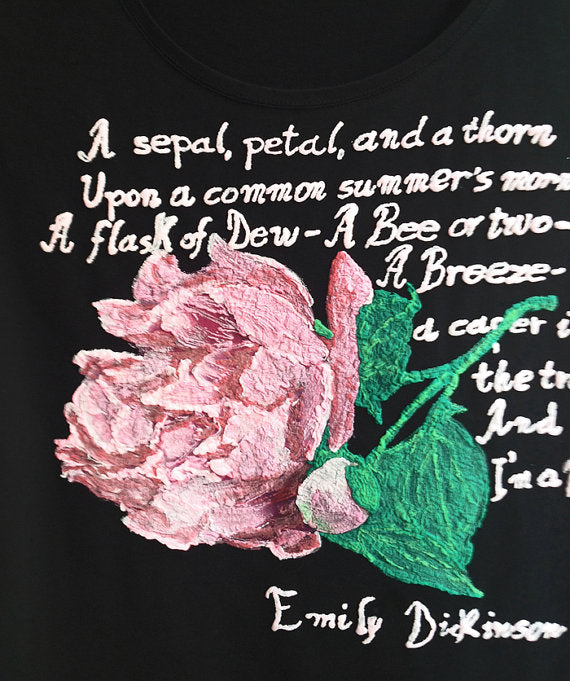 A sepal, petal, and a thorn
Upon a common summer's morn
A flask of Dew - A Bee or two -
A Breeze -
a caper i
the tr
And
I'm a
Emily Dickinson